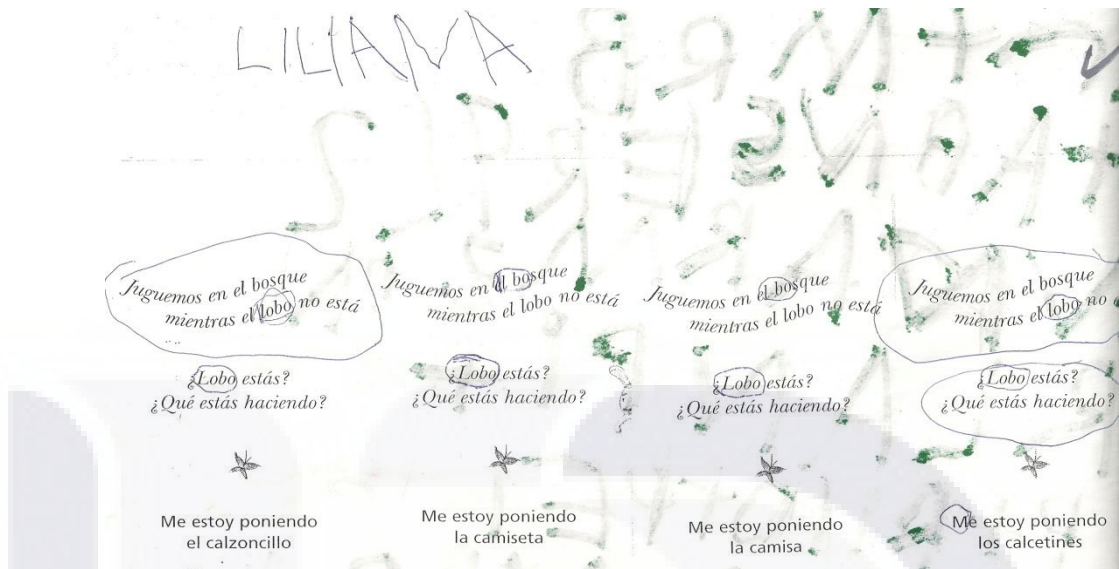 LILIANA
Juguemos en el bosque
mientras el lobo no está
¿Lobo estás?
¿Qué estás haciendo?
Me estoy poniendo
el calzoncillo
Juguemos en el bosque
mientras el lobo no está
¿Lobo estás?
¿Qué estás haciendo?
Me estoy poniendo
la camiseta
Juguemos en el bosque
mientras el lobo no está
¿Lobo estás?
¿Qué estás haciendo?
Me estoy poniendo
la camisa
Juguemos en el bosque
mientras el lobo no
¿Lobo estás?
¿Qué estás haciendo?
Me estoy poniendo
los calcetines